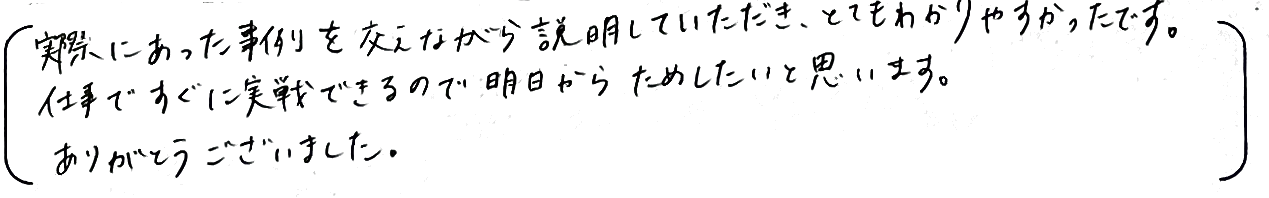 実際にあった事例を交えながら説明していただき、とてもわかりやすかったです。
仕事ですぐに実戦できるので明日からためしたいと思います。
ありがとうございました。